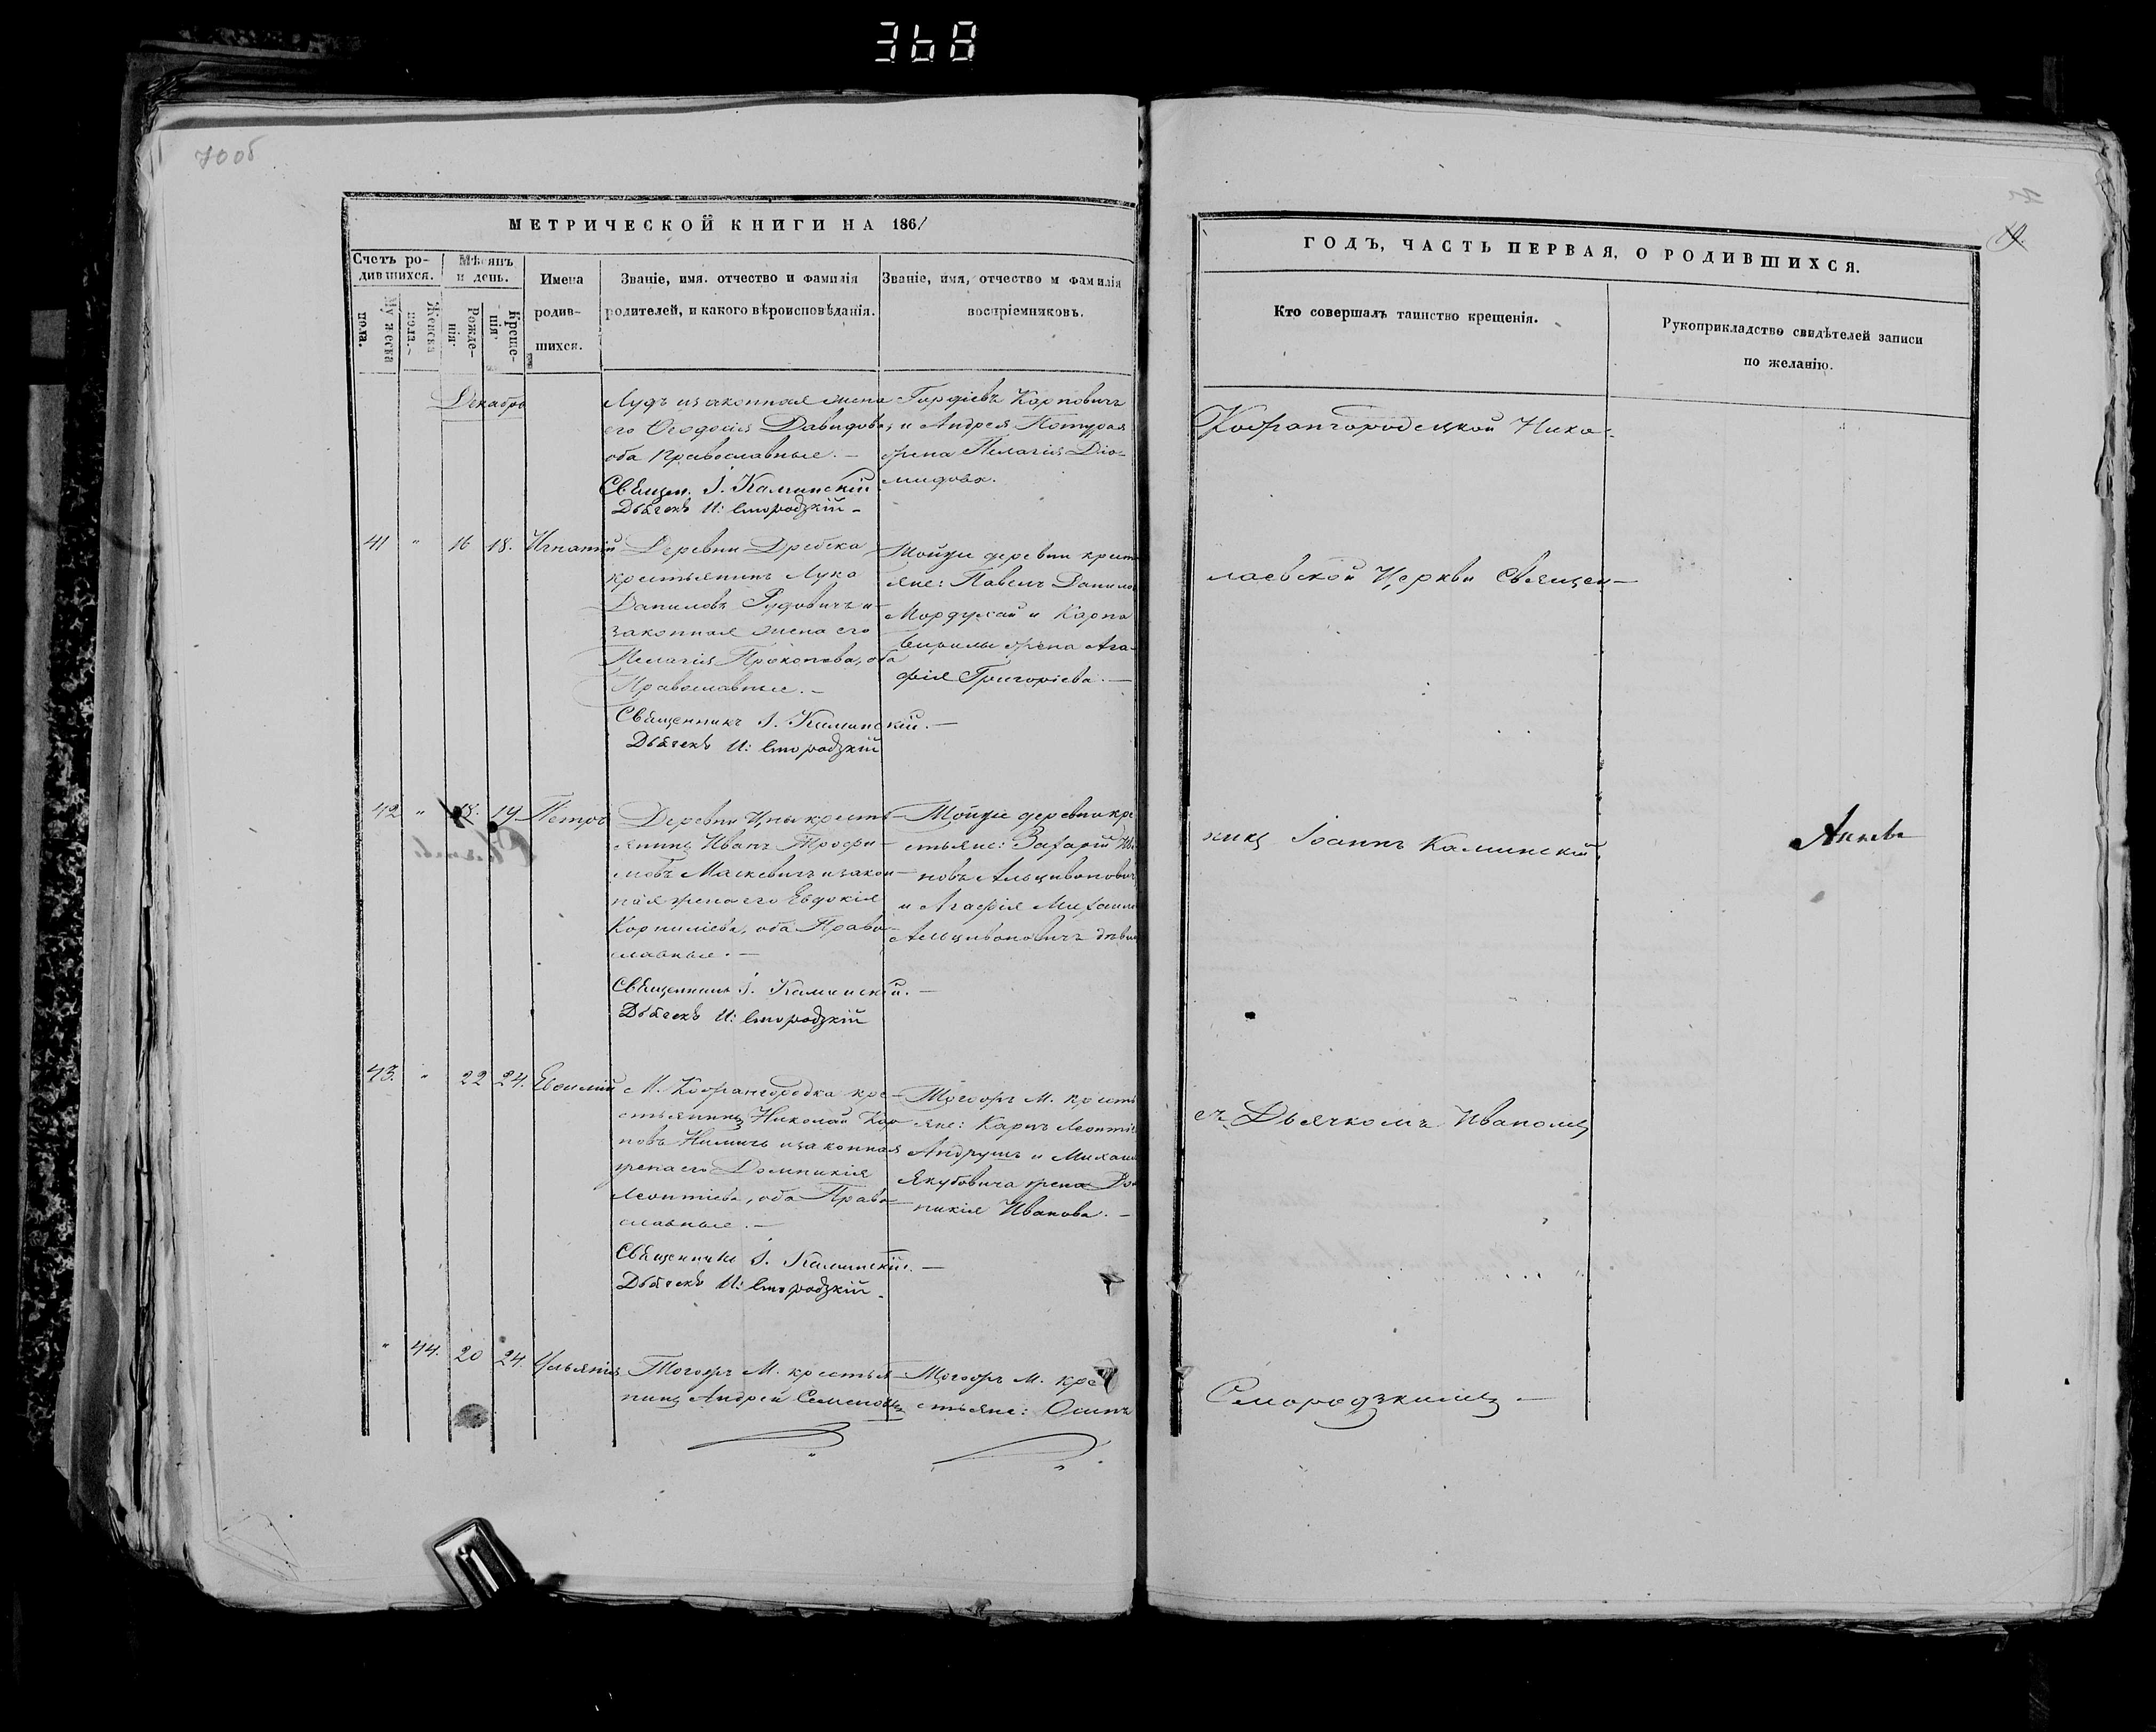 368
70об
МЕТРИЧЕСКОЙ КНИГИ НА 1861
Счетъ ро-
дившихся.
Мѣсяцъ
и день.
Имена
родив-
шихся.
Званіе, имя. отчество и фамилія
родителей, и какого вѣроисповѣданія.
Званіе, имя, отчество и фамилія
воспріемниковъ.
Мужеска
пола.
Женска
пола.
Рожде-
нія.
Креще-
нія.
Декабрь
Лудъ и законная жена
его Ѳеодосія Давидова,
оба Православные. —
Священ. І. Каминскій
Дьячекъ И: Смородзкій —
Гордіевъ Карповичъ
и Андрея
жена Пелагія Дио-
мидова.
41 " 16 18. Игнатій
Деревни Дребска
крестьянинъ Лука
Даниловъ Рудовичъ и
законная жена его
Пелагія Прокопова, оба
Православные. —
Священникъ І. Каминскій. —
Дьячекъ И: Смородзкій
Тойже деревни крест
яне: Павелъ Данилов
Мордухай и Карпа
жена Ага-
фія Григоріева. —
42 " 18. 19 Петръ
Деревни Цны кресть-
янинъ Иванъ Трофи-
мовъ Маскевичъ и закон-
ная жена его Евдокія
Корниліева, оба Право-
славные. —
Священникъ І. Каминскій. —
Дьячекъ И: Смородзкій
Тойже деревни кре
стьяне: Захарій
новъ
и Агафія Михаил
43. " 22 24. Евѳимій
М. Кожангородка кре-
стьянинъ Николай Кар-
повъ и законная
жена его Домникія
Леонтіева, оба Право-
славные. —
Священникъ І. Каминскій. —
Дьячекъ И: Смородзкій.
Тогоожъ М. кресть
яне: Карпъ Леонтіев
Андрушъ и Михаил
Якубовича жена До
никія Иванова. —
" 44. 20 24. Ульянія
Тогоожъ М. крестья-
нинъ Андрей Семеновъ
Тогоожъ М. кре
стьяне: Осипъ
ГОДЪ, ЧАСТЬ ПЕРВАЯ, О РОДИВШИХСЯ.
Кто совершалъ таинство крещенія.
Рукоприкладство свидѣтелей записи
по желанію.
Кожангородецкой Нико-
лаевской Церкви Священ—
никъ Іоаннъ Каминскій
съ Дьячкомъ Иваномъ
Смородзкимъ —